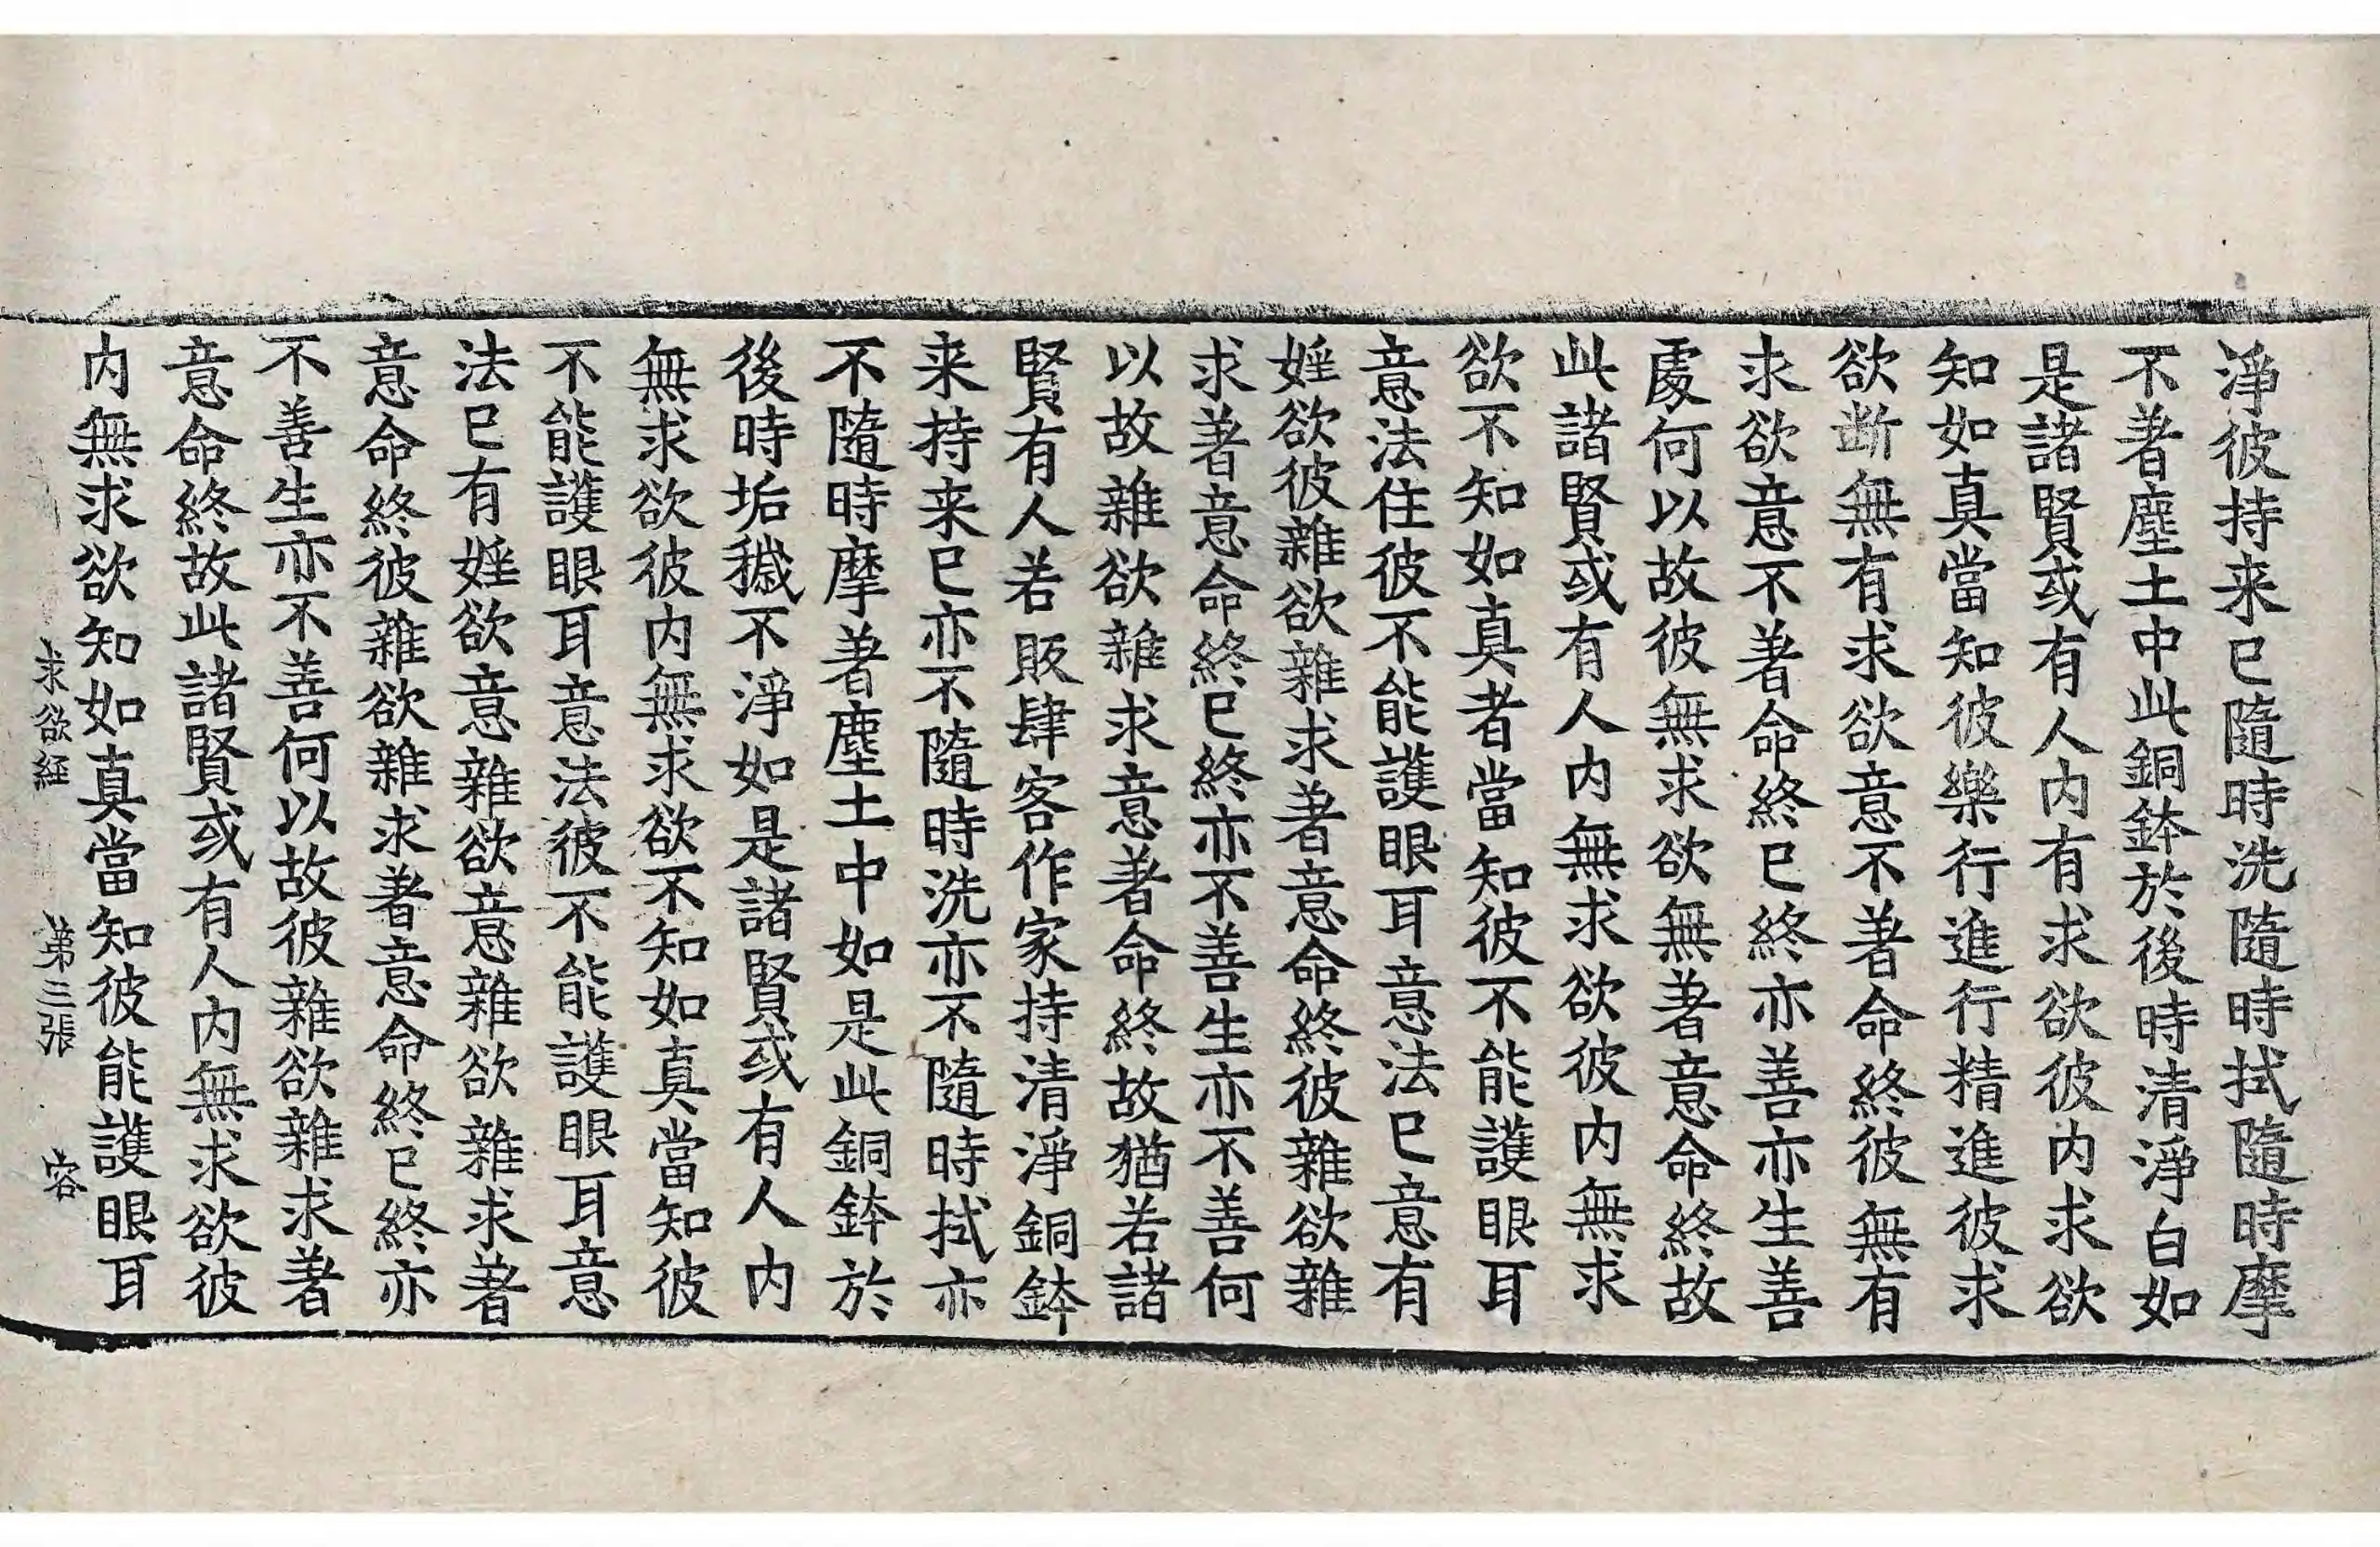 淨彼持来已隨時洗隨時拭隨時摩
不著塵土中此銅鉢於後時清淨白如
是諸賢或有人内有求欲彼内求欲
知如真當知彼樂行進行精進彼求
欲断無有求欲意不著命終彼無有
求欲意不著命終已終亦善亦生善
處何以故彼無求欲無著意命終故
此諸賢或有人内無求欲彼内無求
欲不知如真者當知彼不能護眼耳
意法住彼不能護眼耳意法已意有
婬欲彼雜欲雜求著意命終彼雜欲雜
求著意命終已終亦不善生亦不善何
以故雜欲雜求意著命終故猶若諸
賢有人若販肆客作家持清淨銅鉢
来持来已亦不隨時洗亦不隨時拭亦
不隨時摩著塵土中如是此銅鉢於
後時垢穢不淨如是諸賢或有人内
無求欲彼内無求欲不知如真當知彼
不能護眼耳意法彼不能護眼耳意
法已有婬欲意雜欲意雜欲雜求著
意命終彼雜欲雜求著意命終已終亦
不善生亦不善何以故彼雜欲雜求著
意命終故此諸賢或有人内無求欲彼
内無求欲知如真當知彼能護眼耳
求欲経 第三張 容